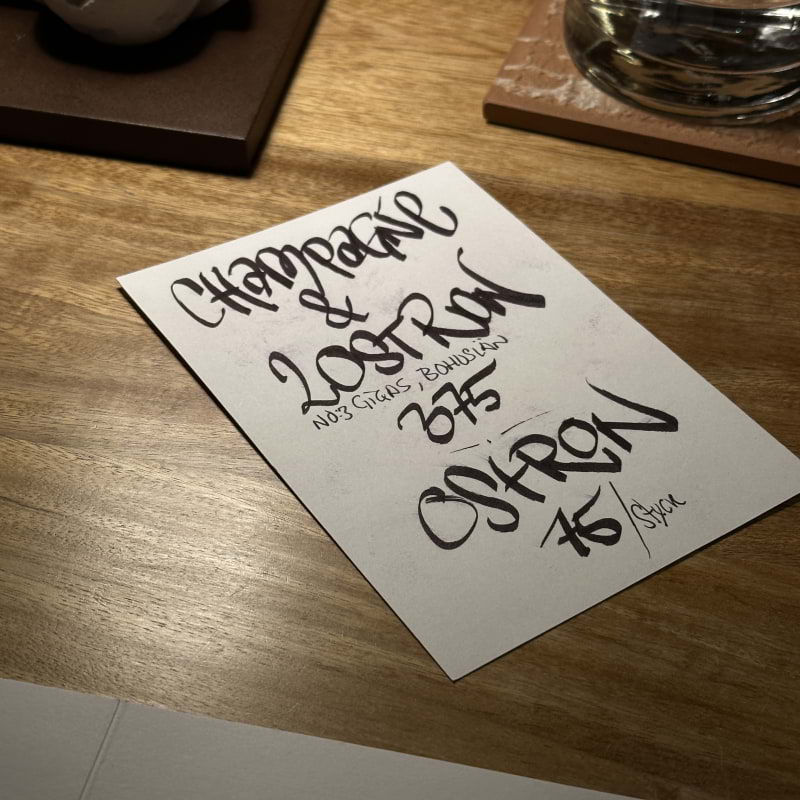 CHAMPAGNE
&
2 OSTRON
NO:3 GIGAS, BOHUSLÄN
375
OSTRON
75/STYCK